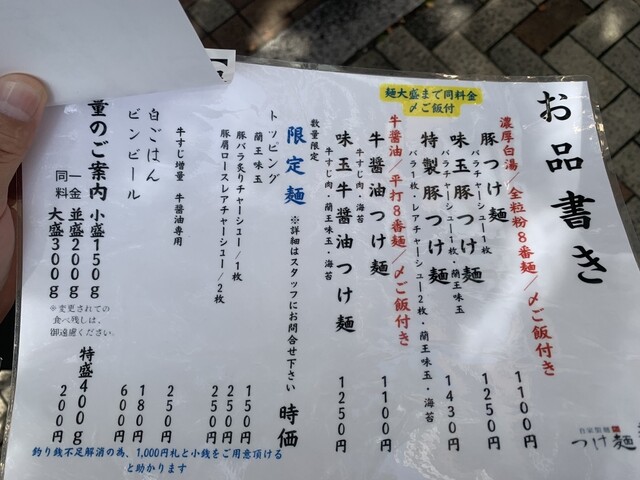 お品書き
麺大盛まで同料金
〆ご飯付
濃厚白湯/全粒粉8番麺/〆ご飯付き
豚つけ麺 1100円
バラチャーシュー1枚
味玉豚つけ麺 1250円
バラチャーシュー1枚・蘭王味玉
特製豚つけ麺 1430円
バラ1枚・レアチャーシュー2枚・蘭王味玉・海苔
牛醤油/平打8番麺/〆ご飯付き
牛醤油つけ麺 1100円
牛すじ肉・海苔
味玉牛醤油つけ麺 1250円
牛すじ肉・蘭王味玉・海苔
数量限定
限定麺 時価
※詳細はスタッフにお問合せ下さい
トッピング
蘭王味玉 150円
豚バラ炙りチャーシュー/1枚 250円
豚肩ロースレアチャーシュー/2枚 250円
牛すじ増量 牛醤油専用 250円
白ごはん 180円
ビンビール 600円
量のご案内
小盛150g
並盛200g
大盛300g
同一料金
特盛400g 200円
※変更されての
食べ残しは、
御遠慮ください。
釣り銭不足解消の為、1,000円札と小銭をご用意頂ける
と助かります
自家製麺
つけ麺